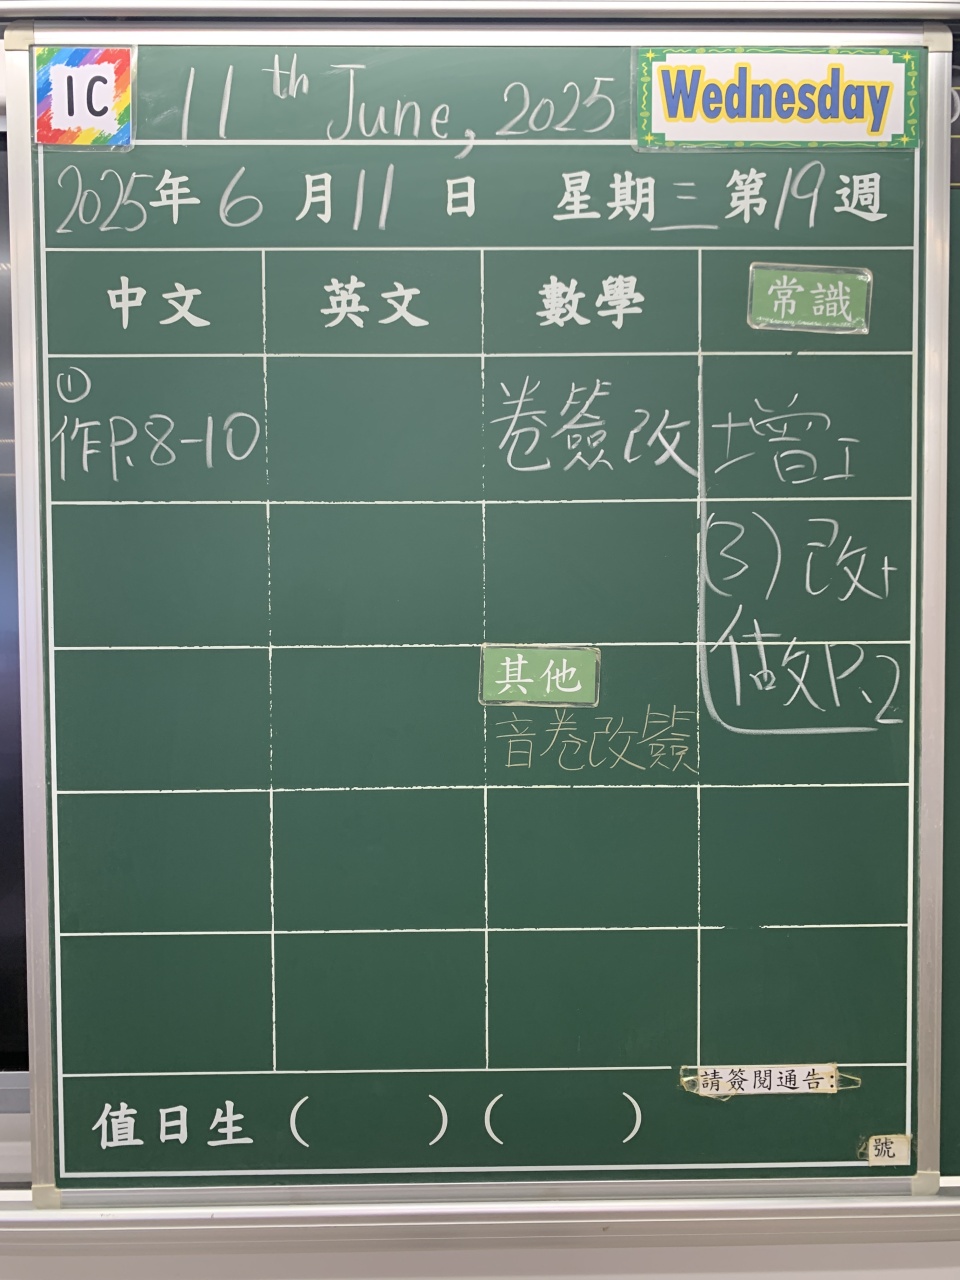 1C 11th June, 2025 Wednesday
2025年6月11日 星期三第19週
中文 英文 數學 常識
①
作P.8-10 卷簽改 增工
(3)改+
做P.2
其他
音卷改簽
請簽閱通告:
值日生( )( )
號